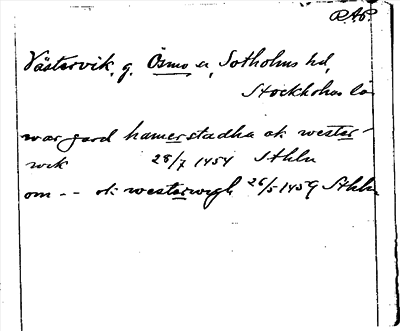 RAP.
Västervik, g. Ösmo sn, Sotholms hd,
Stockholms lä
war gard hamerstadha ok wester-
wik 28/7 1454 Sthlm
om -- ok westerwigh 26/5 1459 Sthlm